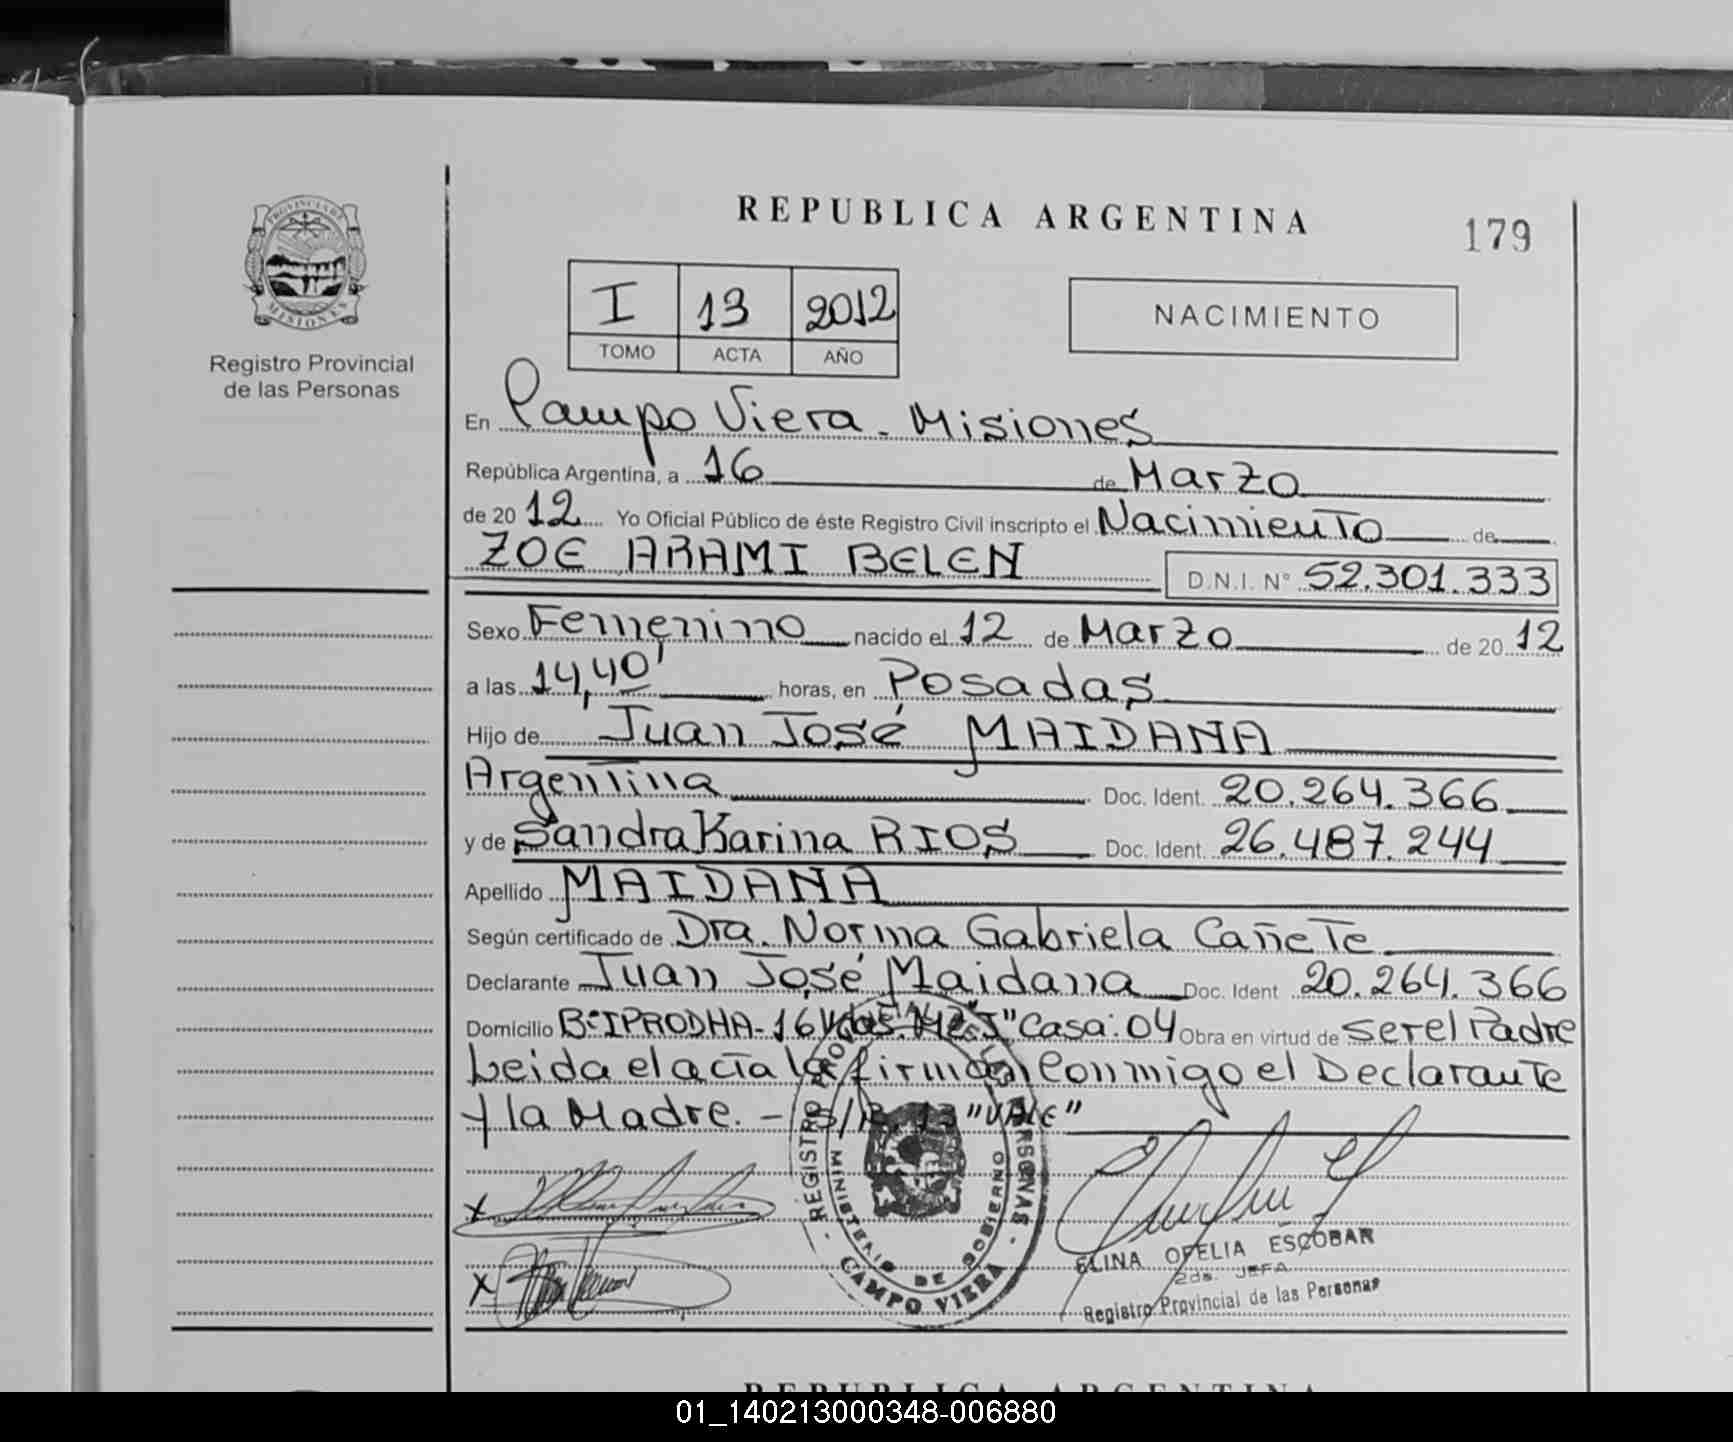 REPUBLICA ARGENTINA
179
PROVINCIA DE
MISIONES
Registro Provincial
de las Personas
I 13 2012
TOMO ACTA AÑO
NACIMIENTO
En Campo Viera - Misiones
República Argentina, a 16 de Marzo
de 20 12 Yo Oficial Público de éste Registro Civil inscripto el Nacimiento de
ZOE ARAMI BELEN D.N.I. N° 52.301.333
Sexo Femenino nacido el 12 de Marzo de 20 12
a las 14,40' horas, en Posadas
Hijo de Juan José MAIDANA
Argentina Doc. Ident. 20.264.366
y de Sandra Karina RIOS Doc. Ident. 26.487.244
Apellido MAIDANA
Según certificado de Dra. Norma Gabriela Cañete
Declarante Juan José Maidana Doc. Ident 20.264.366
Domicilio B° IPRODHA-16 Vdas. Mz "J" Casa: 04 Obra en virtud de ser el Padre
Leida el acta la firman Conmigo el Declarante
y la Madre. - S/R. 13 "VALE"
REGISTRO PROVINCIAL DE LAS PERSONAS
MINISTERIO DE GOBIERNO
CAMPO VIERA
X
X
ELINA OFELIA ESCOBAR
2da. JEFA
Registro Provincial de las Personas
REPUBLICA ARGENTINA
01_140213000348-006880